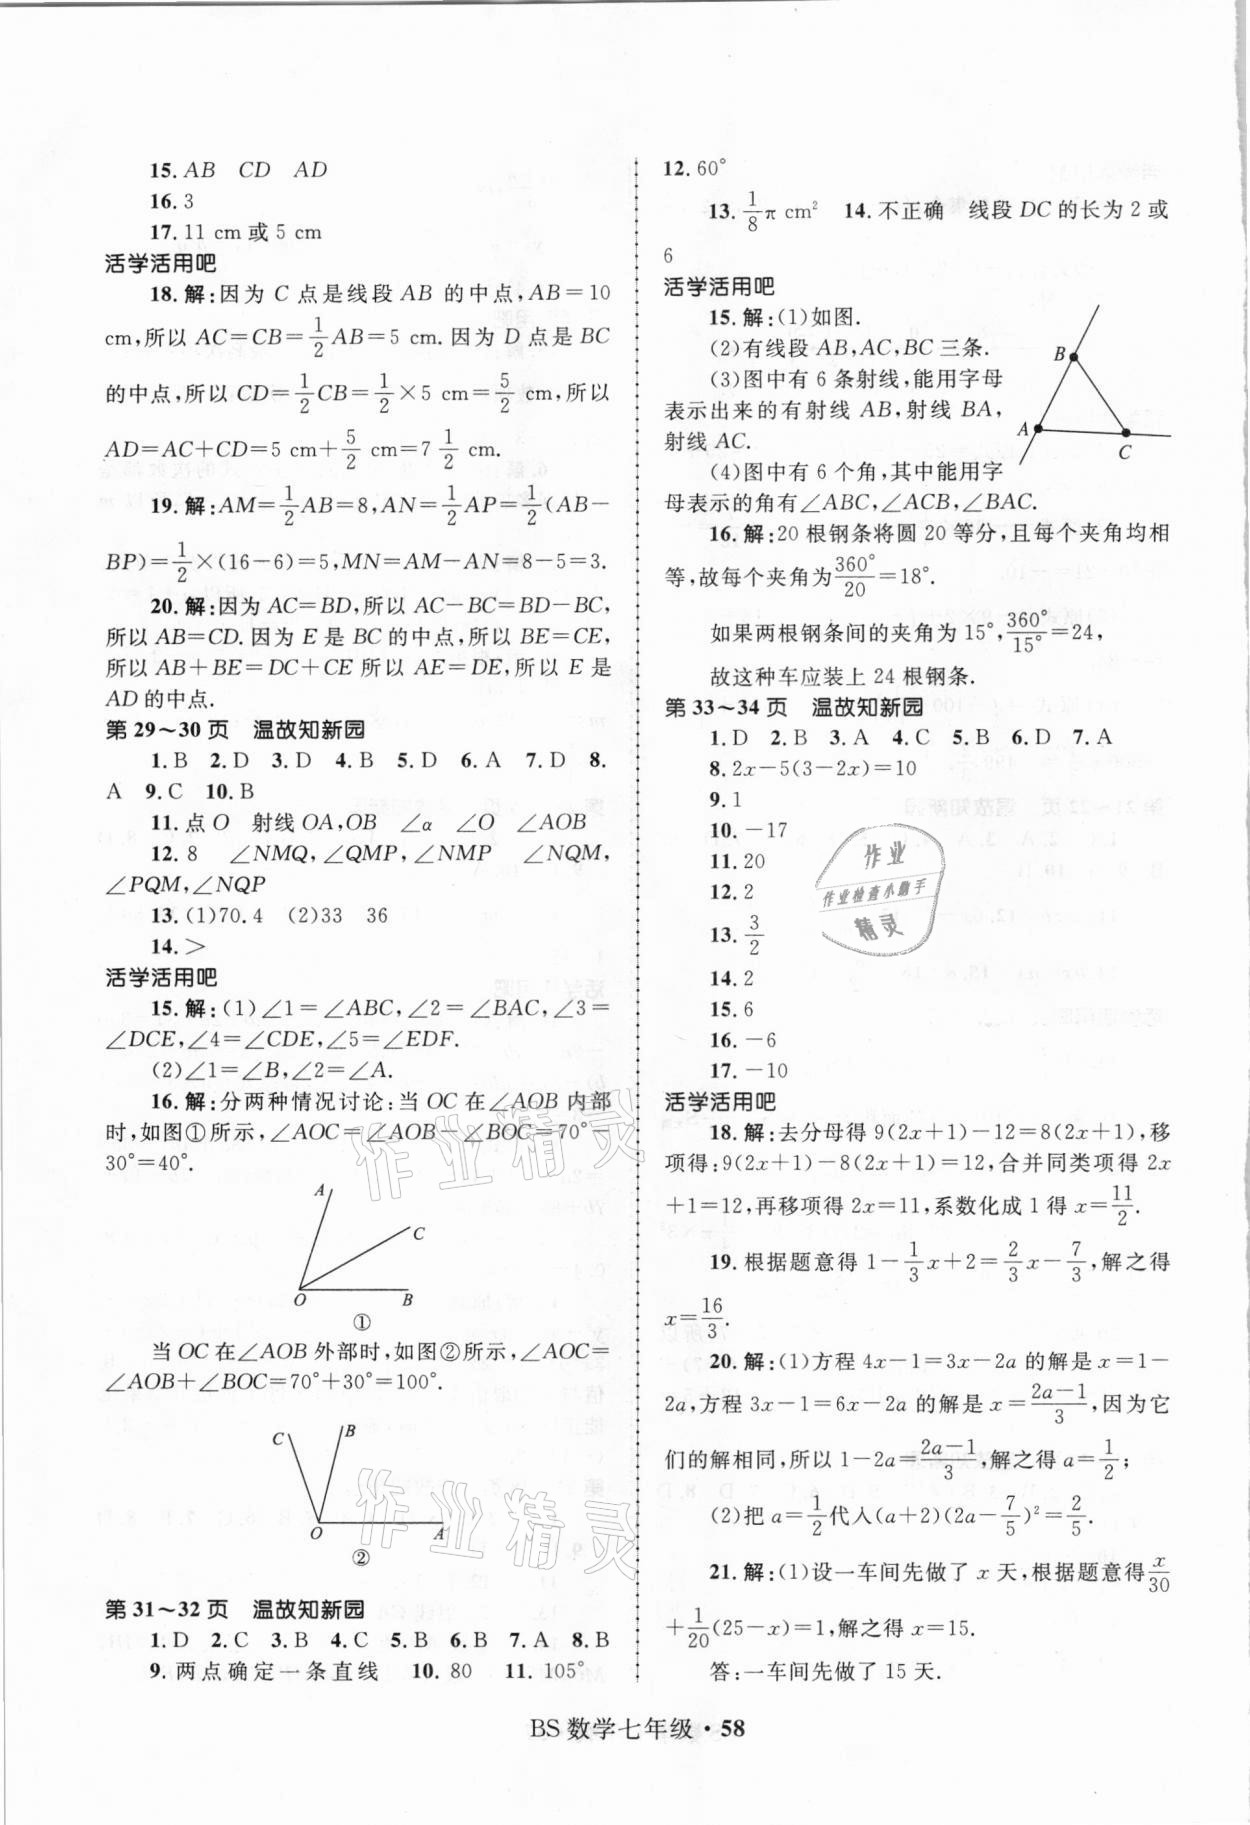 15. AB　CD　AD
16. 3
17. 11 cm 或 5 cm
活学活用吧
18. 解:因为 C 点是线段 AB 的中点,AB=10
cm,所以 AC=CB=1/2AB=5 cm.因为 D 点是 BC
的中点,所以 CD=1/2CB=1/2×5 cm=5/2 cm,所以
AD=AC+CD=5 cm+5/2 cm=7 1/2 cm.
19. 解:AM=1/2AB=8,AN=1/2AP=1/2(AB-
BP)=1/2×(16-6)=5,MN=AM-AN=8-5=3.
20. 解:因为 AC=BD,所以 AC-BC=BD-BC,
所以 AB=CD.因为 E 是 BC 的中点,所以 BE=CE,
所以 AB+BE=DC+CE 所以 AE=DE,所以 E 是
AD 的中点.
第 29~30 页　温故知新园
1. B　2. D　3. D　4. B　5. D　6. A　7. D　8.
A　9. C　10. B
11. 点 O　射线 OA,OB　∠α　∠O　∠AOB
12. 8　∠NMQ,∠QMP,∠NMP　∠NQM,
∠PQM,∠NQP
13. (1)70.4　(2)33　36
14. >
活学活用吧
15. 解:(1)∠1=∠ABC,∠2=∠BAC,∠3=
∠DCE,∠4=∠CDE,∠5=∠EDF.
(2)∠1=∠B,∠2=∠A.
16. 解:分两种情况讨论:当 OC 在∠AOB 内部
时,如图①所示,∠AOC=∠AOB-∠BOC=70°-
30°=40°.
A
C
O
B
①
当 OC 在∠AOB 外部时,如图②所示,∠AOC=
∠AOB+∠BOC=70°+30°=100°.
C
B
O
A
②
第 31~32 页　温故知新园
1. D　2. C　3. B　4. C　5. B　6. B　7. A　8. B
9. 两点确定一条直线　10. 80　11. 105°
12. 60°
13. 1/8π cm²　14. 不正确　线段 DC 的长为 2 或
6
活学活用吧
15. 解:(1)如图.
(2)有线段 AB,AC,BC 三条.
(3)图中有 6 条射线,能用字母
表示出来的有射线 AB,射线 BA,
射线 AC.
(4)图中有 6 个角,其中能用字
母表示的角有∠ABC,∠ACB,∠BAC.
B
A
C
16. 解:20 根钢条将圆 20 等分,且每个夹角均相
等,故每个夹角为360°/20=18°.
如果两根钢条间的夹角为 15°,360°/15°=24,
故这种车应装上 24 根钢条.
第 33~34 页　温故知新园
1. D　2. B　3. A　4. C　5. B　6. D　7. A
8. 2x-5(3-2x)=10
9. 1
10. -17
11. 20
12. 2
13. 3/2
14. 2
15. 6
16. -6
17. -10
活学活用吧
18. 解:去分母得 9(2x+1)-12=8(2x+1),移
项得:9(2x+1)-8(2x+1)=12,合并同类项得 2x
+1=12,再移项得 2x=11,系数化成 1 得 x=11/2.
19. 根据题意得 1-1/3x+2=2/3x-7/3,解之得
x=16/3.
20. 解:(1)方程 4x-1=3x-2a 的解是 x=1-
2a,方程 3x-1=6x-2a 的解是 x=2a-1/3,因为它
们的解相同,所以 1-2a=2a-1/3,解之得 a=1/2;
(2)把 a=1/2代入(a+2)(2a-7/5)²=2/5.
21. 解:(1)设一车间先做了 x 天,根据题意得x/30
+1/20(25-x)=1,解之得 x=15.
答:一车间先做了 15 天.
作业
作业检查小助手
精灵
作业精灵
作业精灵
BS 数学七年级·58